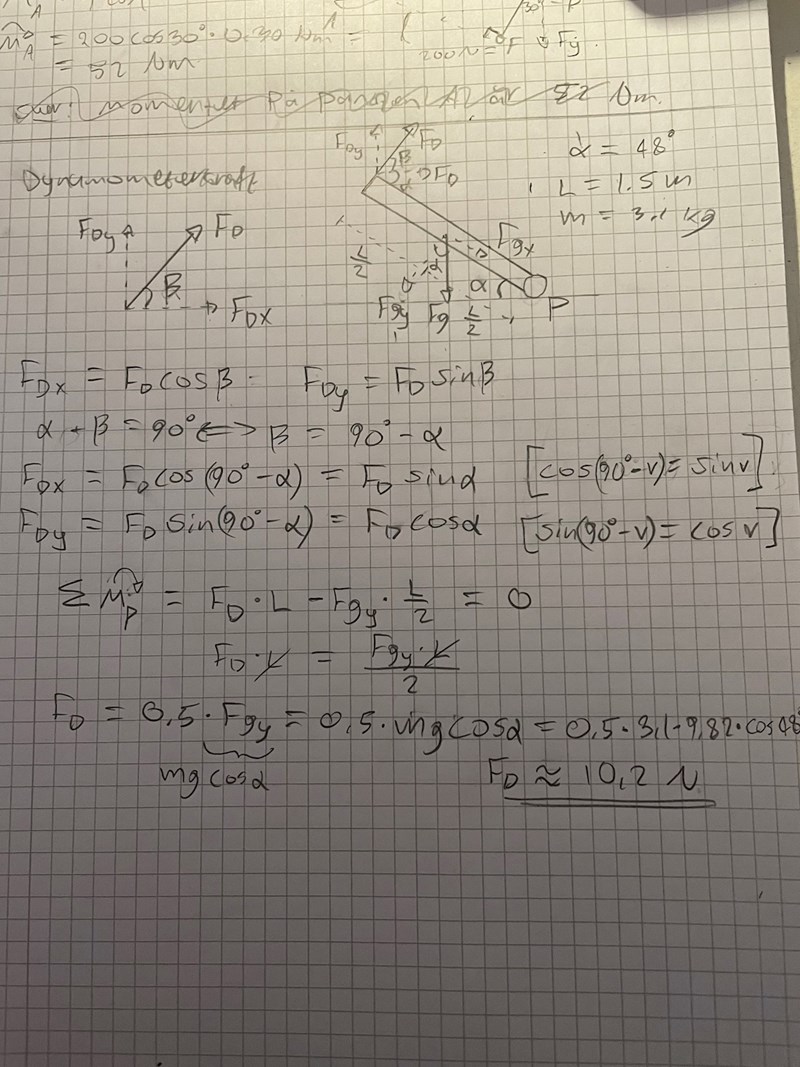 A
M_A = 200 cos 30° · 0,30 Nm =
30°
200 N = F Fy
= 52 Nm
Svar: momentet på A är 52 Nm.
Dynamometerkraft
F_Dy F_D β
α = 48°
L = 1.5 m
m = 3.1 kg
F_Dy F_D β F_Dx
L/2 α F_gx α
F_gy F_g L/2 P
F_Dx = F_D cos β · F_Dy = F_D sin β
α + β = 90° <=> β = 90° - α
F_Dx = F_D cos (90° - α) = F_D sin α [cos(90° - v) = sin v]
F_Dy = F_D sin(90° - α) = F_D cos α [sin(90° - v) = cos v]
Σ M_P = F_D · L - F_gy · L/2 = 0
F_D · L = F_gy · L / 2
F_D = 0,5 · F_gy = 0,5 · mg cos α = 0,5 · 3,1 · 9,82 · cos 48°
mg cos α F_D ≈ 10,2 N